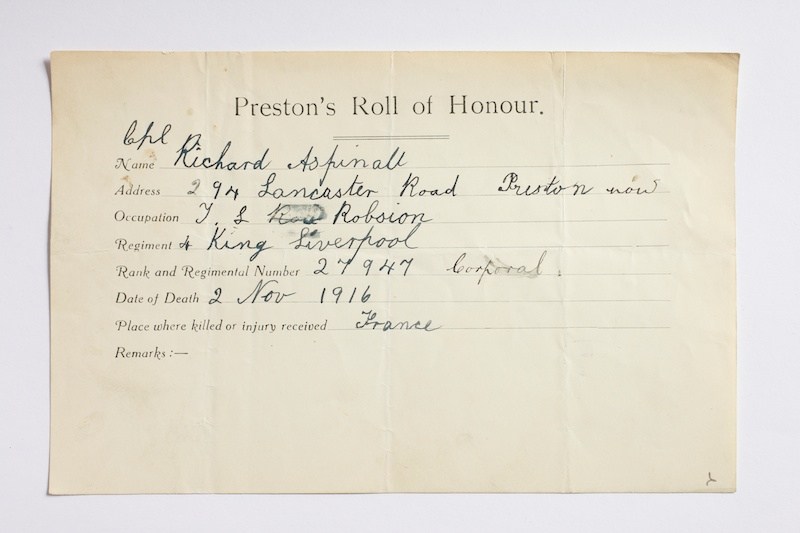 Preston's Roll of Honour.
Cpl
Name Richard Aspinall
Address 294 Lancaster Road Preston now
Occupation T. S Robsion
Regiment 4 King Liverpool
Rank and Regimental Number 27947 Corporal.
Date of Death 2 Nov 1916
Place where killed or injury received France
Remarks :—